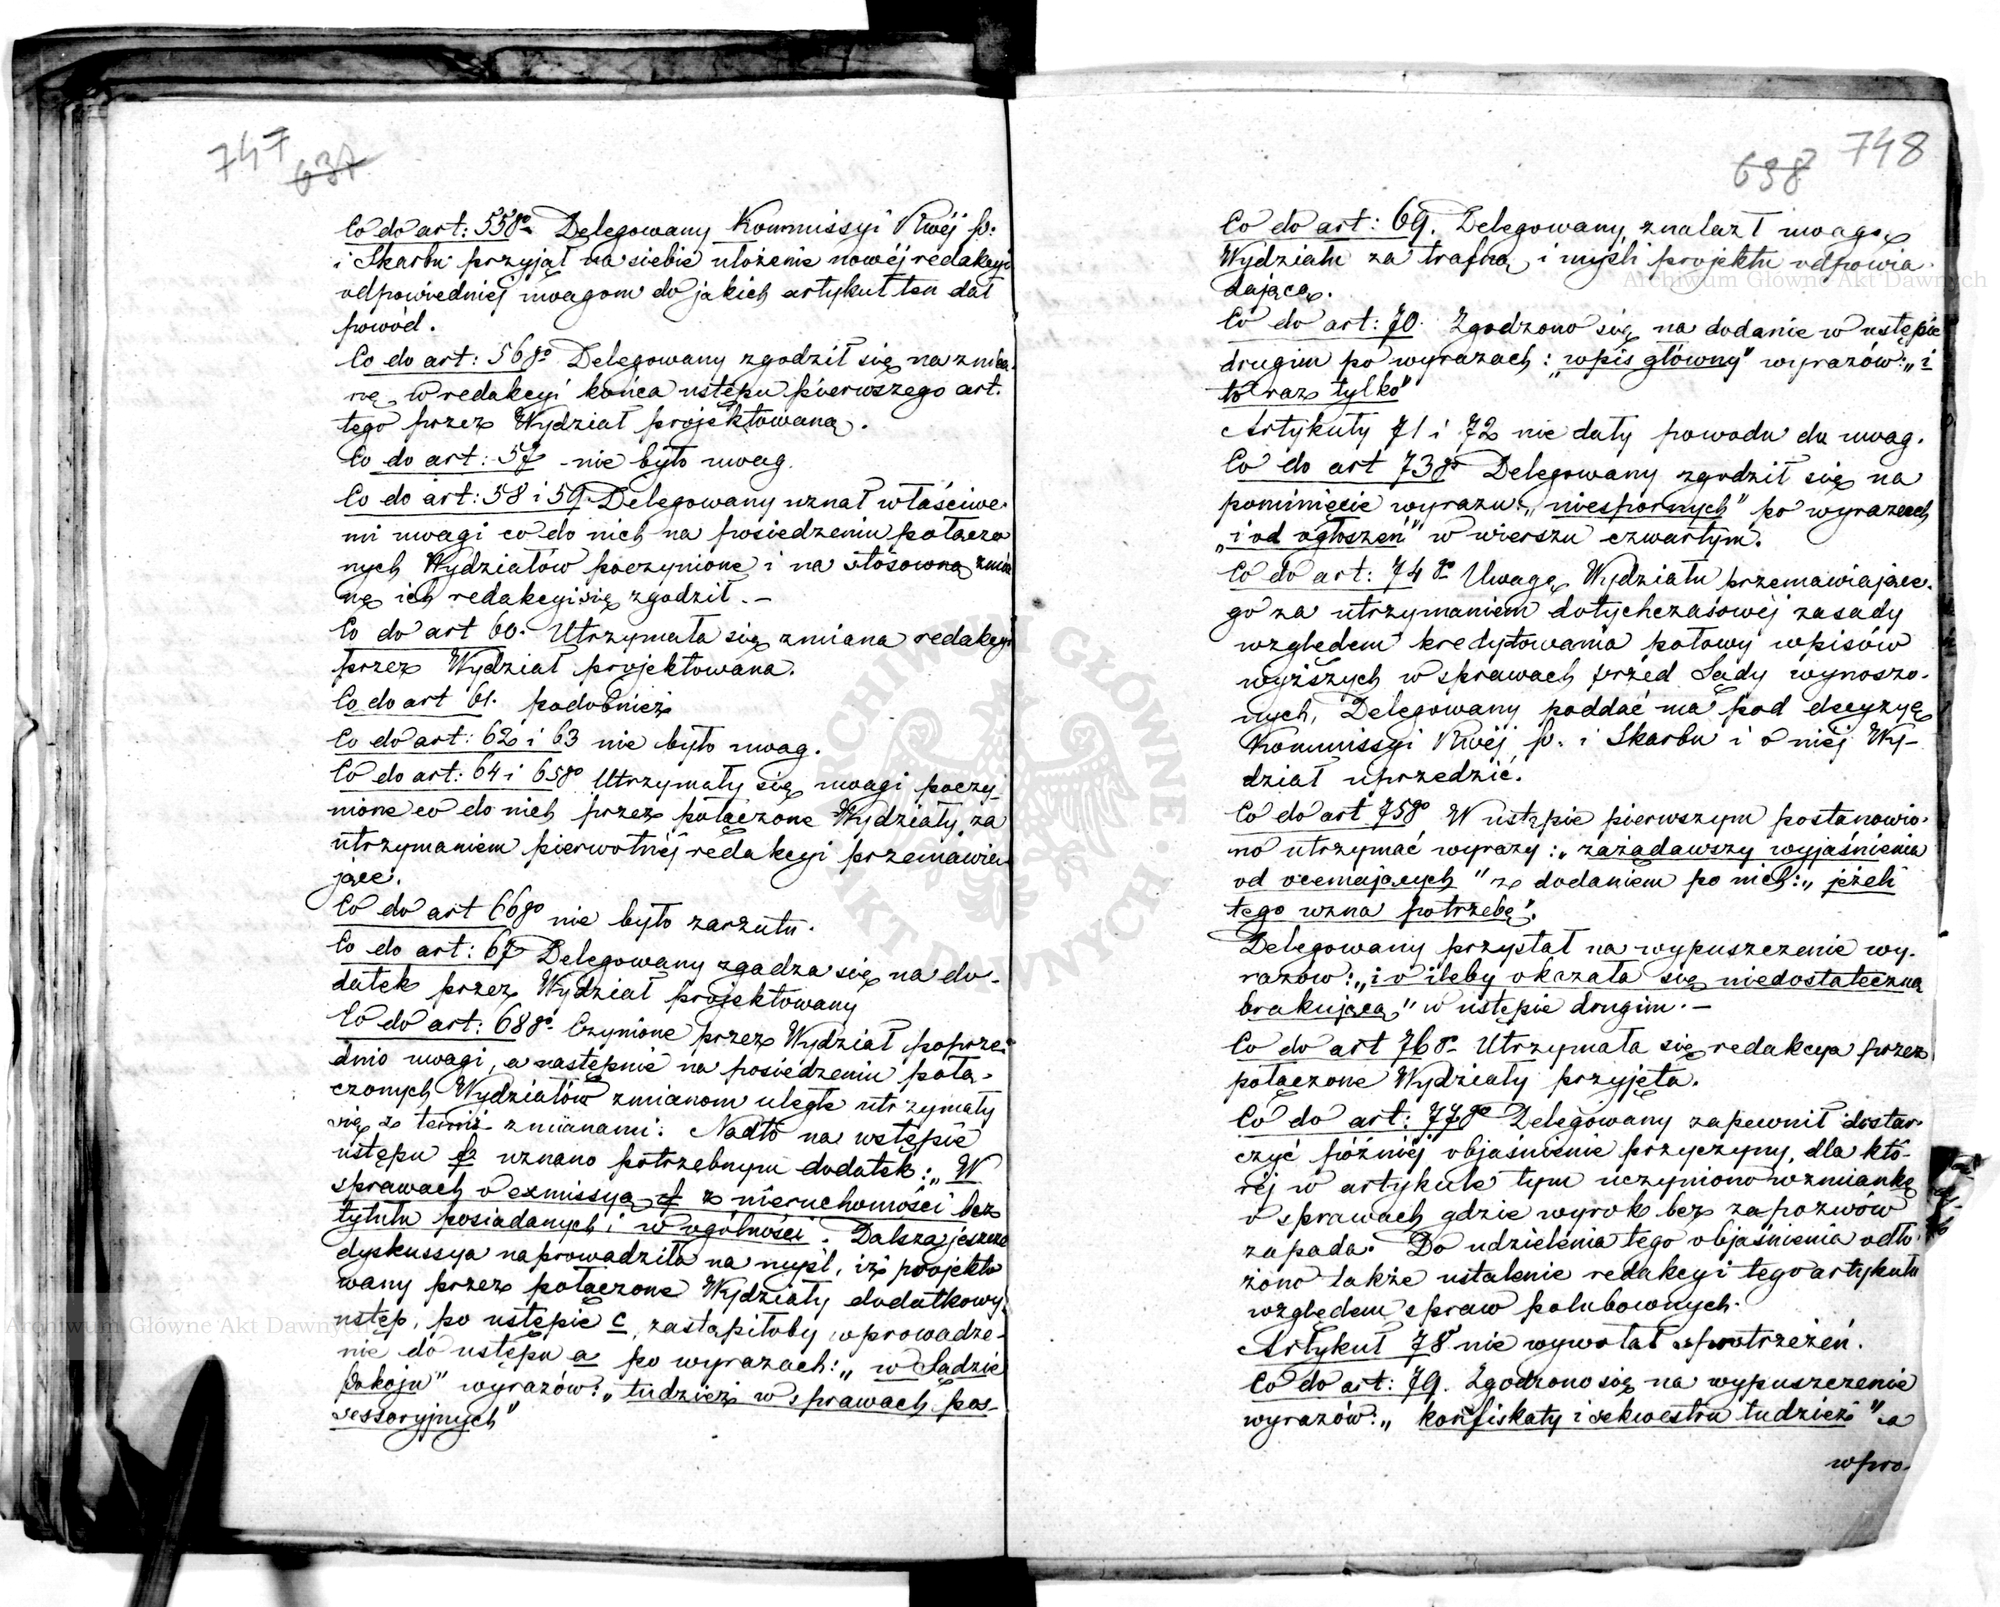 747
637
Co do art: 55go Delegowany Kommissyi Rwéj p:
i Skarbu przyjął na siebie ułożenie nowéj redakcyi
odpowiedniéj uwagom do jakich artykuł ten dał
powód.
Co do art: 56go Delegowany zgodził się na zmia-
nę w redakcyi końca ustępu pierwszego art.
tego przez Wydział projektowaną.
Co do art: 57 nie było uwag.
Co do art: 58 i 59. Delegowany uznał właściwe-
mi uwagi co do nich na posiedzeniu połączo
nych Wydziałów poczynione i na stósowną zmia
nę ich redakcyi się zgodził. –
Co do art 60. Utrzymała się zmiana redakcyi
przez Wydział projektowana.
Co do art 61. podobnież
Co do art: 62 i 63 nie było uwag.
Co do art: 64 i 65go Utrzymały się uwagi poczy-
nione co do nich przez połączone Wydziały, za
utrzymaniem pierwotnéj redakcyi przemawia-
jące.
Co do art 66go nie było zarzutu.
Co do art: 67 Delegowany zgadza się na do-
datek przez Wydział projektowany
Co do art: 68go Czynione przez Wydział poprze-
dnio uwagi, a następnie na posiedzeniu połą-
czonych Wydziałów zmianom uległe utrzymały
się z temiż zmianami. Nadto na wstępie
ustępu uznano potrzebnym dodatek: „W
sprawach o exmissyą z nieruchomości bez
tytułu posiadanych i w ogólności. Dalsza jeszcze
dyskussya naprowadziła na myśl, iż projekto
wany przez połączone Wydziały dodatkowy
ustęp, po ustępie c, zastąpiłoby wprowadze-
nie do ustępu a po wyrazach: „w Sądzie
Pokoju” wyrazów: „tudzież w sprawach pos-
sessoryjnych”
638
748
Co do art: 69. Delegowany znalazł uwagę
Wydziału za trafną i myśli projektu odpowia-
dającą.
Co do art: 70. Zgodzono się na dodanie w ustępie
drugim po wyrazach: „wpis główny” wyrazów: „i
to raz tylko”
Artykuły 71 i 72 nie dały powodu do uwag.
Co do art 73go Delegowany zgodził się na
pominięcie wyrazu „niespornych” po wyrazach
„i od ogłoszeń” w wierszu czwartym.
Co do art: 74go Uwagę Wydziału przemawiające-
go za utrzymaniem dotychczasowéj zasady
względem kredytowania połowy wpisów
wyższych w sprawach przed Sądy wynoszo-
nych, Delegowany poddać ma pod decyzyę
Kommissyi Rwéj p. i Skarbu i o niéj Wy-
dział uprzedzić.
Co do art 75go W ustępie pierwszym postanowio-
no utrzymać wyrazy: „zażądawszy wyjaśnienia
od oceniających” z dodaniem po nich: „jeżeli
tego uzna potrzebę”.
Delegowany przystał na wypuszczenie wy-
razów: „i o ileby okazała się niedostateczną
brakującą” w ustępie drugim. –
Co do art 76go Utrzymała się redakcya przez
połączone Wydziały przyjęta.
Co do art: 77go Delegowany zapewnił dostar-
czyć późniéj objaśnienie przyczyny, dla któ-
réj w artykule tym uczyniono wzmiankę
o sprawach gdzie wyrok bez zapozwów
zapada. Do udzielenia tego objaśnienia odło-
żono także ustalenie redakcyi tego artykułu
względem spraw polubownych.
Artykuł 78 nie wywołał spostrzeżeń.
Co do art: 79. Zgodzono się na wypuszczenie
wyrazów: „konfiskaty i sekwestru tudzież” a
wpro-
Archiwum Główne Akt Dawnych
Archiwum Główne Akt Dawnych
ARCHIWUM GŁÓWNE AKT DAWNYCH